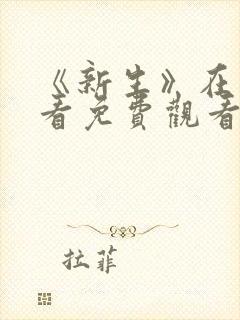 《新生》在
看免費觀看
拉菲